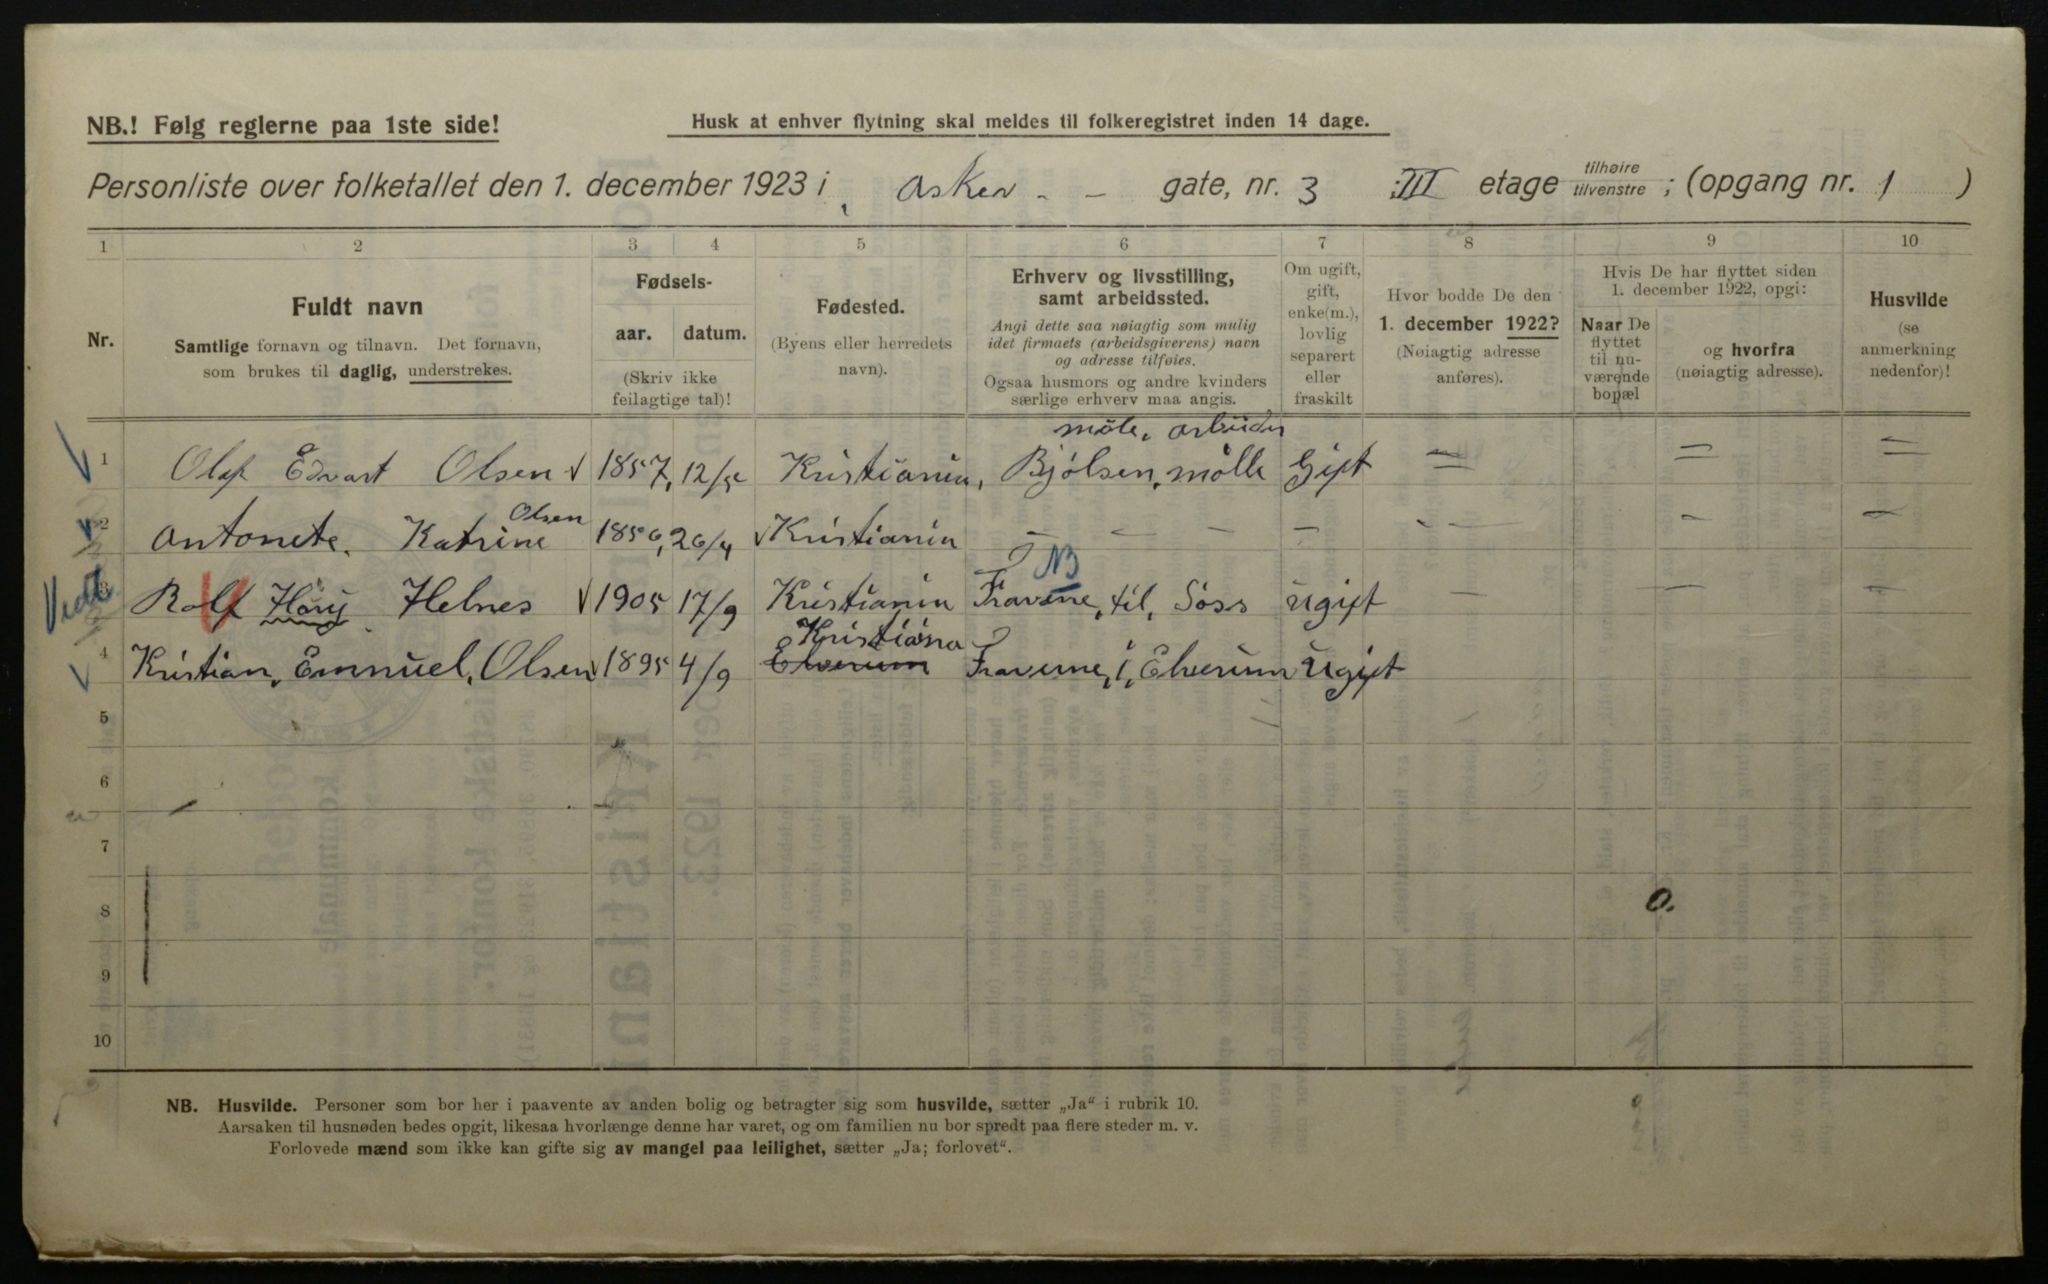 NB.! Følg reglerne paa 1ste side!
Husk at enhver flytning skal meldes til folkeregistret inden 14 dage.
Personliste over folketallet den 1. december 1923 i Asker - - gate, nr. 3 III etage tilhøire tilvenstre ; (opgang nr. 1 )
1 2 3 4 5 6 7 8 9 10
Nr.
Fuldt navn
Samtlige fornavn og tilnavn. Det fornavn,
som brukes til daglig, understrekes.
Fødsels-
aar. datum.
(Skriv ikke
feilagtige tal)!
Fødested.
(Byens eller herredets
navn).
Erhverv og livsstilling,
samt arbeidssted.
Angi dette saa nøiagtig som mulig
idet firmaets (arbeidsgiverens) navn
og adresse tilføies.
Ogsaa husmors og andre kvinders
særlige erhverv maa angis.
Om ugift,
gift,
enke(m.),
lovlig
separert
eller
fraskilt
Hvor bodde De den
1. december 1922?
(Nøiagtig adresse
anføres).
Hvis De har flyttet siden
1. december 1922, opgi:
Naar De
flyttet
til nu-
værende
bopæl
og hvorfra
(nøiagtig adresse).
Husvilde
(se
anmerkning
nedenfor)!
møle, arbeider
1 Olaf Edvart Olsen 1857, 12/5 Kristiania, Bjølsen, mølle Gift = = =
Olsen
2 Antonete. Katrine 1856, 26/4 Kristiania - - - - - - -
NB
3 Rolf Hary Helnes 1905 17/9 Kristiania Fraverne, til, Søss ugift - - -
Kristiana
4 Kristian, Emnuel, Olsen 1895 4/9 Elverum Fraverne, i, Elverum Ugift
5
6
7
8 0.
9
10
NB. Husvilde. Personer som bor her i paavente av anden bolig og betragter sig som husvilde, sætter „Ja“ i rubrik 10.
Aarsaken til husnøden bedes opgit, likesaa hvorlænge denne har varet, og om familien nu bor spredt paa flere steder m. v.
Forlovede mænd som ikke kan gifte sig av mangel paa leilighet, sætter „Ja; forlovet“.